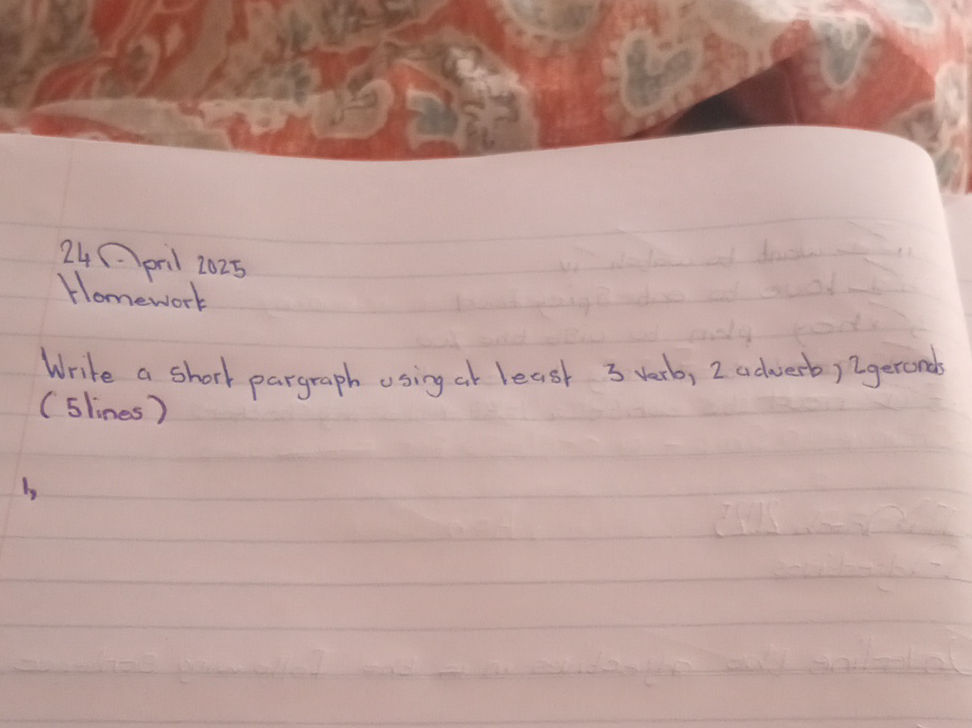 24 April 2025
Homework
Write a short pargraph using at least 3 verb, 2 adverb, 2 gerunds
(5 lines)